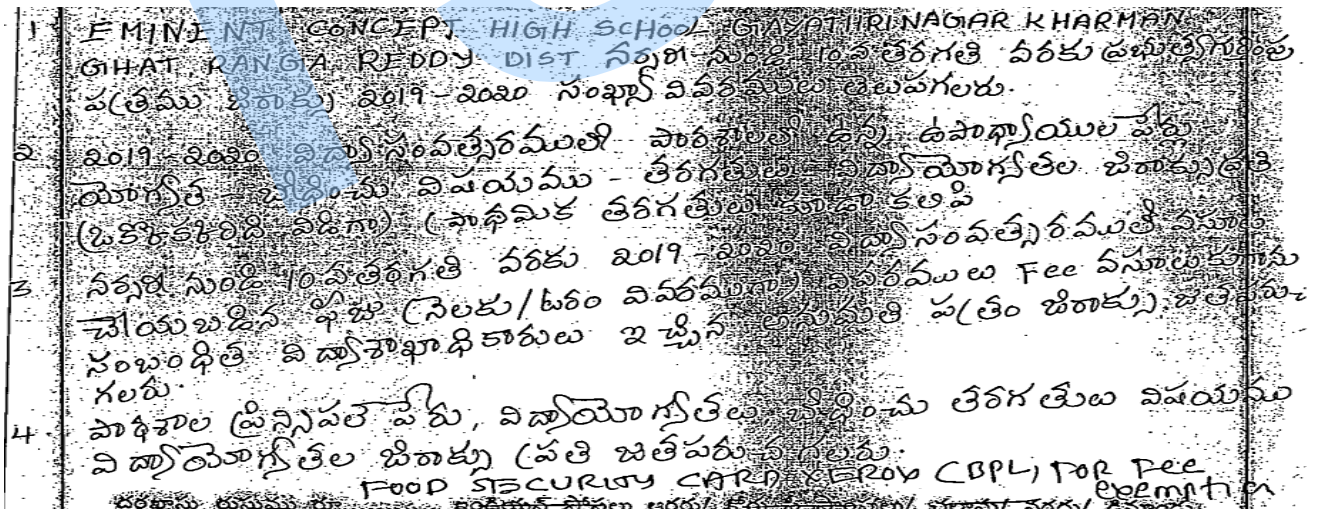 1 EMINENT CONCEPT HIGH SCHOOL GAYATHRINAGAR KHARMAN
GHAT, RANGA REDDY DIST నర్సరీ నుండి 10వ తరగతి వరకు ప్రభుత్వ గుర్తింపు
పత్రము జిరాక్సు 2019-2020 సంఖ్యా వివరములు తెలుపగలరు.
2 2019-2020 విద్యా సంవత్సరములో పాఠశాలలో ఉన్న ఉపాధ్యాయుల పేర్లు
యోగ్యత బోధించు విషయము - తరగతులు - విద్యాయోగ్యతల జిరాక్సు ప్రతి
(ఒకొకకరిది విడిగా) (ప్రాథమిక తరగతులు కూడా కలిపి
3 నర్సరీ నుండి 10వ తరగతి వరకు 2019-2020 విద్యా సంవత్సరములో
చేయబడిన ఫీజు (నెలకు/టరం వివరముగా) వివరములు Fee వసూలుకుగాను
సంబంధిత విద్యాశాఖాధికారులు ఇచ్చిన అనుమతి పత్రం జిరాక్సు జతపరు-
గలరు.
4. పాఠశాల ప్రిన్సిపల్ పేరు, విద్యాయోగ్యతలు బోధించు తరగతులు విషయము
విద్యాయోగ్యతల జిరాక్సు ప్రతి జతపరుచగలరు.
FOOD SECURITY CARD XEROX (BPL) FOR Fee
exemption